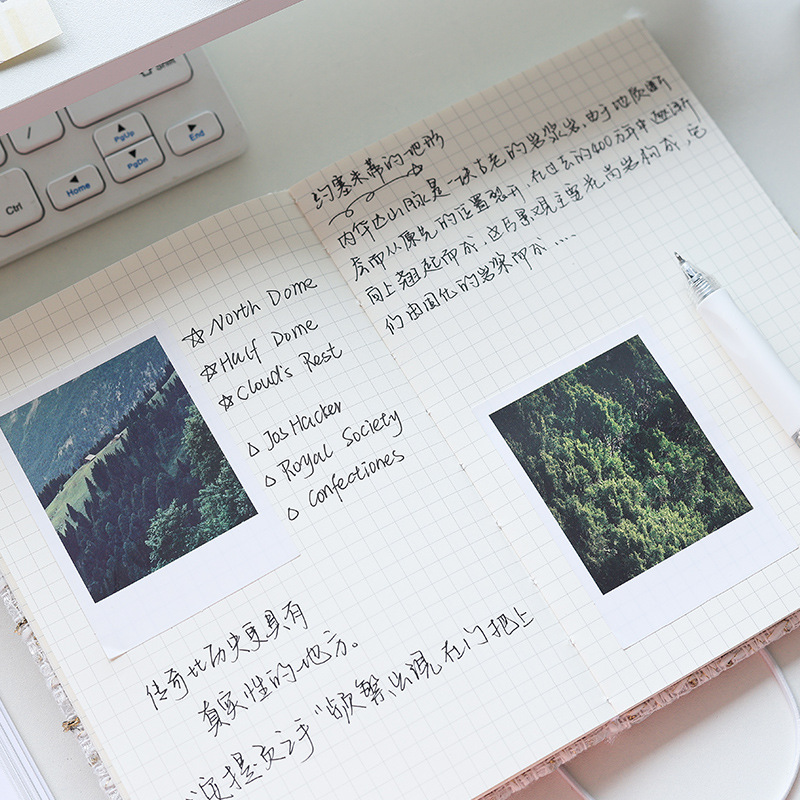 Shift
PgUp
PgDn
End
Home
Ctrl
/
North Dome
Half Dome
Cloud's Rest
Jos Hacker
Royal Society
Confectiones
传奇比历史更具有
真实性的地方。
频繁出现在门把上
约塞米蒂的地形
内华达山脉是一块古老的岩浆岩，由于地质断
层而从原先的位置裂开，在过去的400万年中逐渐
向上翘起而成，这片景观主要花岗岩构成，它
们由固化的岩浆而成....